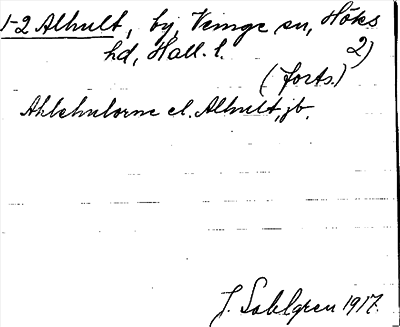 1-2 Alhult, by, Veinge sn, Höks
hd, Hall. l. 2)
(forts.)
Ahlehulorne el. Alhult, jb.
J. Sahlgren 1917.